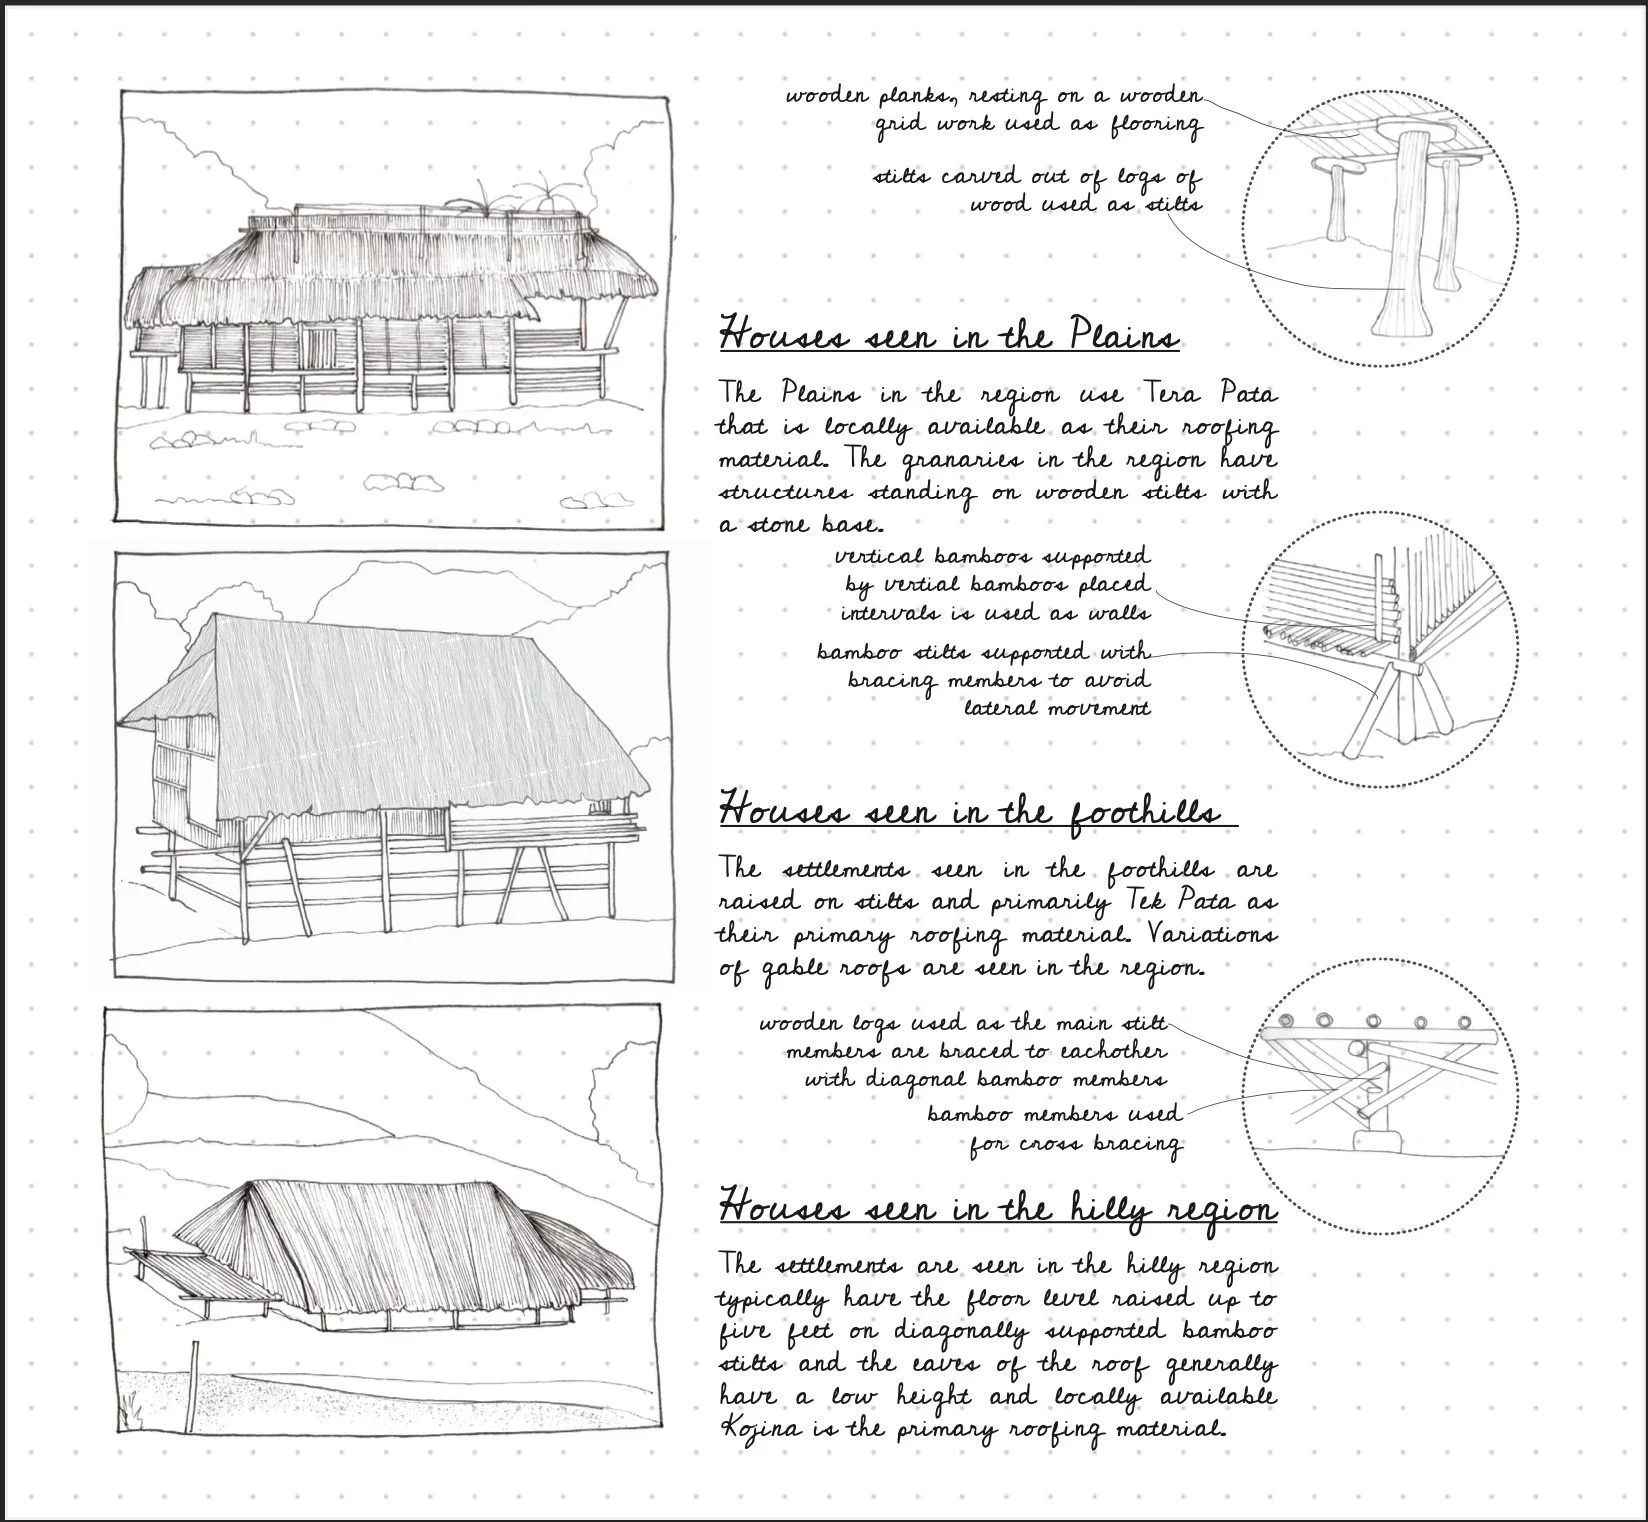 wooden planks, resting on a wooden
grid work used as flooring
stilts carved out of logs of
wood used as stilts
Houses seen in the Plains
The Plains in the region use Tera Pata
that is locally available as their roofing
material. The granaries in the region have
structures standing on wooden stilts with
a stone base.
vertical bamboos supported
by vertial bamboos placed
intervals is used as walls
bamboo stilts supported with
bracing members to avoid
lateral movement
Houses seen in the foothills
The settlements seen in the foothills are
raised on stilts and primarily Tek Pata as
their primary roofing material. Variations
of gable roofs are seen in the region.
wooden logs used as the main stilt
members are braced to eachother
with diagonal bamboo members
bamboo members used
for cross bracing
Houses seen in the hilly region
The settlements are seen in the hilly region
typically have the floor level raised up to
five feet on diagonally supported bamboo
stilts and the eaves of the roof generally
have a low height and locally available
Kojina is the primary roofing material.